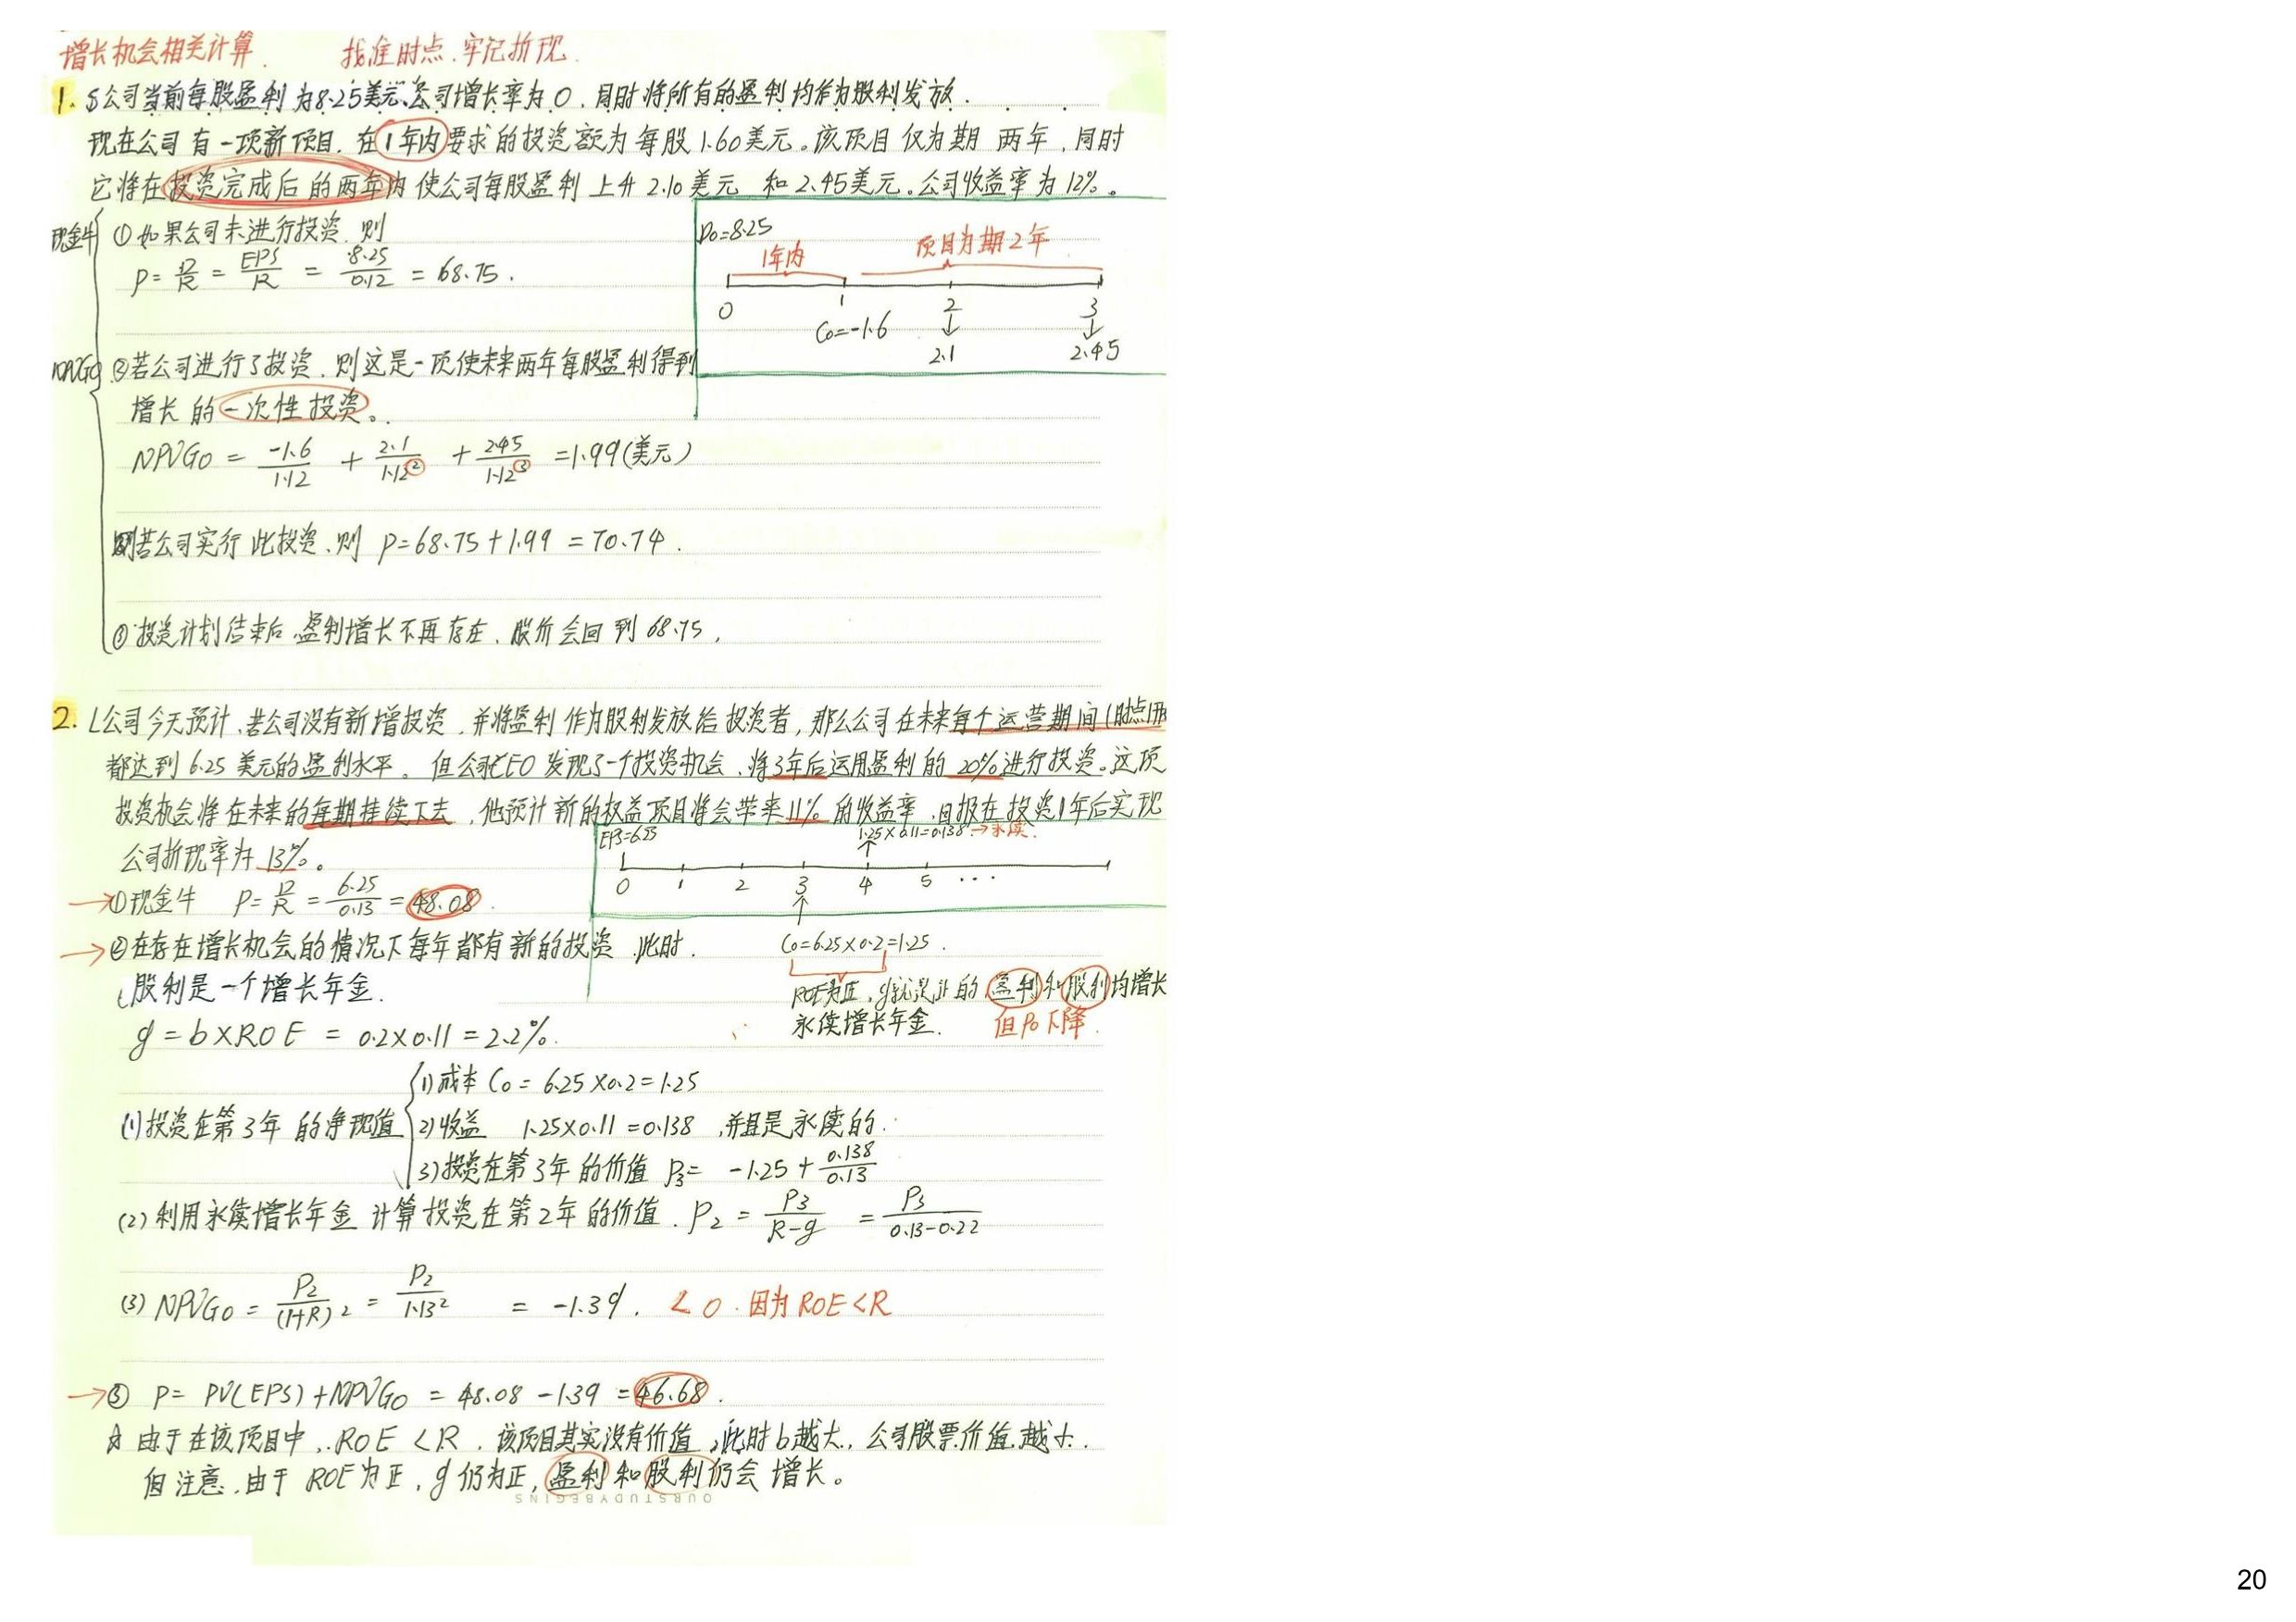 增长机会相关计算. 找准时点.牢记折现.
1. S公司当前每股盈利为8.25美元.公司增长率为0.同时将所有的盈利均作为股利发放.
现在公司有一项新项目.在1年内要求的投资额为每股1.60美元。该项目仅为期两年,同时
它将在投资完成后的两年内使公司每股盈利上升2.10美元和2.45美元。公司收益率为12%。
现金牛 ①如果公司未进行投资.则
P=D/R=EPS/R=8.25/0.12=68.75.
D₀=8.25
1年内 项目为期2年
0 1 2 3
C₀=-1.6 ↓ ↓
2.1 2.45
NPVGo ②若公司进行了投资.则这是一项使未来两年每股盈利得到
增长的一次性投资。
NPVGo=-1.6/1.12+2.1/1.12²+2.45/1.12³=1.99(美元)
若公司实行此投资.则 P=68.75+1.99=70.74.
③投资计划结束后.盈利增长不再存在.股价会回到68.75.
2. L公司今天预计.若公司没有新增投资.并将盈利作为股利发放给投资者,那么公司在未来每个运营期间(时点)
都达到6.25美元的盈利水平。但公司CEO发现了一个投资机会.将3年后运用盈利的20%进行投资。这项
投资机会将在未来的每期持续下去,他预计新的权益项目将会带来11%的收益率.且报在投资1年后实现
公司折现率为13%。
EPS=6.25 1.25×0.11=0.138→永续.
↑
0 1 2 3 4 5 ...
↑
C₀=6.25×0.2=1.25.
→①现金牛 P=D/R=6.25/0.13=48.08.
→②在存在增长机会的情况下每年都有新的投资.此时.
股利是一个增长年金.
ROE为正,g就为正的盈利和股利均增长
永续增长年金. 但P₀下降.
g=b×ROE=0.2×0.11=2.2%.
(1)投资在第3年的净现值
1)成本C₀=6.25×0.2=1.25
2)收益 1.25×0.11=0.138,并且是永续的.
3)投资在第3年的价值 P₃=-1.25+0.138/0.13
(2)利用永续增长年金计算投资在第2年的价值.P₂=P₃/R-g=P₃/0.13-0.22
(3)NPVGo=P₂/(1+R)²=P₂/1.13²=-1.39.<0.因为ROE<R
→③ P=PV(EPS)+NPVGo=48.08-1.39=46.68.
☆由于在该项目中,ROE<R.该项目其实没有价值,此时b越大,公司股票价值越小.
但注意.由于ROE为正,g仍为正,盈利和股利仍会增长。
OURSTUDYBEGINS
20